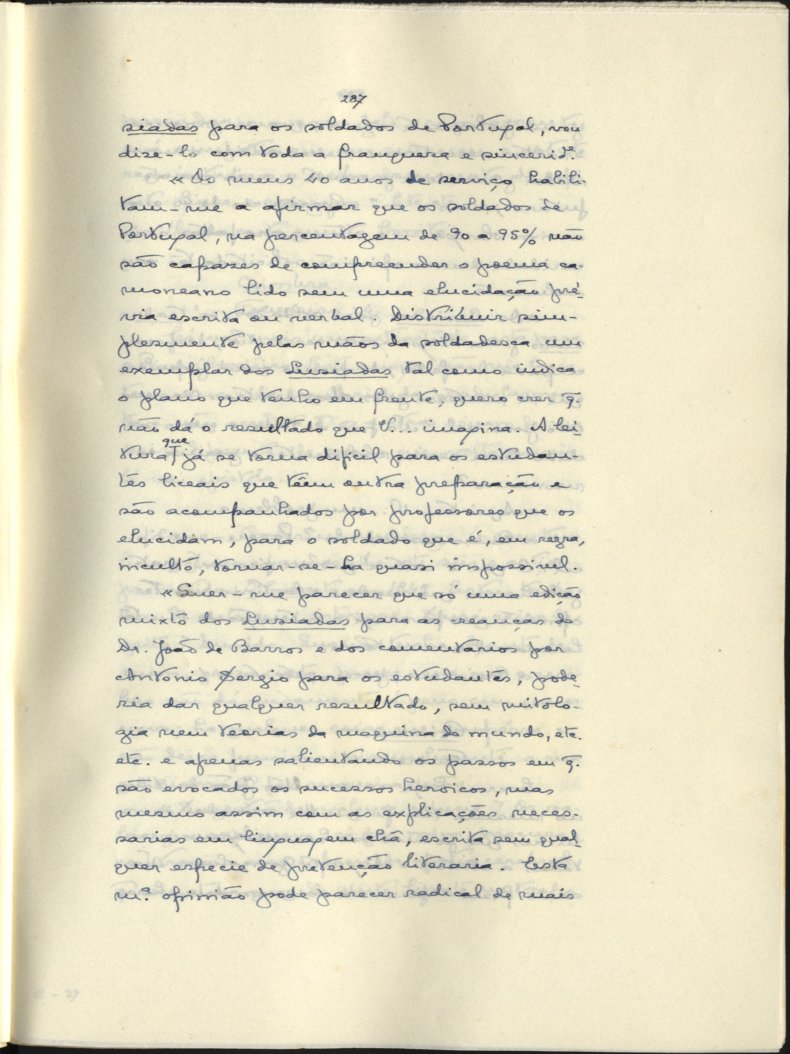 287
siadas para os soldados de Portugal, vou
dize-lo com toda a franqueza e sincerid.e
«Os meus 40 anos de serviço habili-
tam-me a afirmar que os soldados de
Portugal, na percentagem de 90 a 95% não
são capazes de compreender o poema ca-
moneano lido sem uma elucidação pré-
via escrita ou verbal. Distribuir sim-
plesmente pelas mãos da soldadesca um
exemplar dos Lusiadas tal como indica
o plano que tenho em frente, quero crer q.
não dá o resultado que V... imagina. A lei-
tura que já se torna dificil para os estudan-
tes liceais que têm outra preparação e
são acompanhados por professores que os
elucidam, para o soldado que é, em regra,
inculto, tornar-se-ha quasi impossivel.
«Quer-me parecer que só uma edição
mixto dos Lusiadas para as creanças do
Dr. João de Barros e dos comentarios por
Antonio Sergio para os estudantes, pode-
ria dar qualquer resultado, sem mitolo-
gia nem teorias da maquina do mundo, etc.
etc. e apenas salientando os passos em q.
são evocados os sucessos heroicos, mas
mesmo assim com as explicações neces-
sarias em linguagem chã, escrita sem qual-
quer especie de pretenção literaria. Esta
m.a opinião pode parecer radical de mais